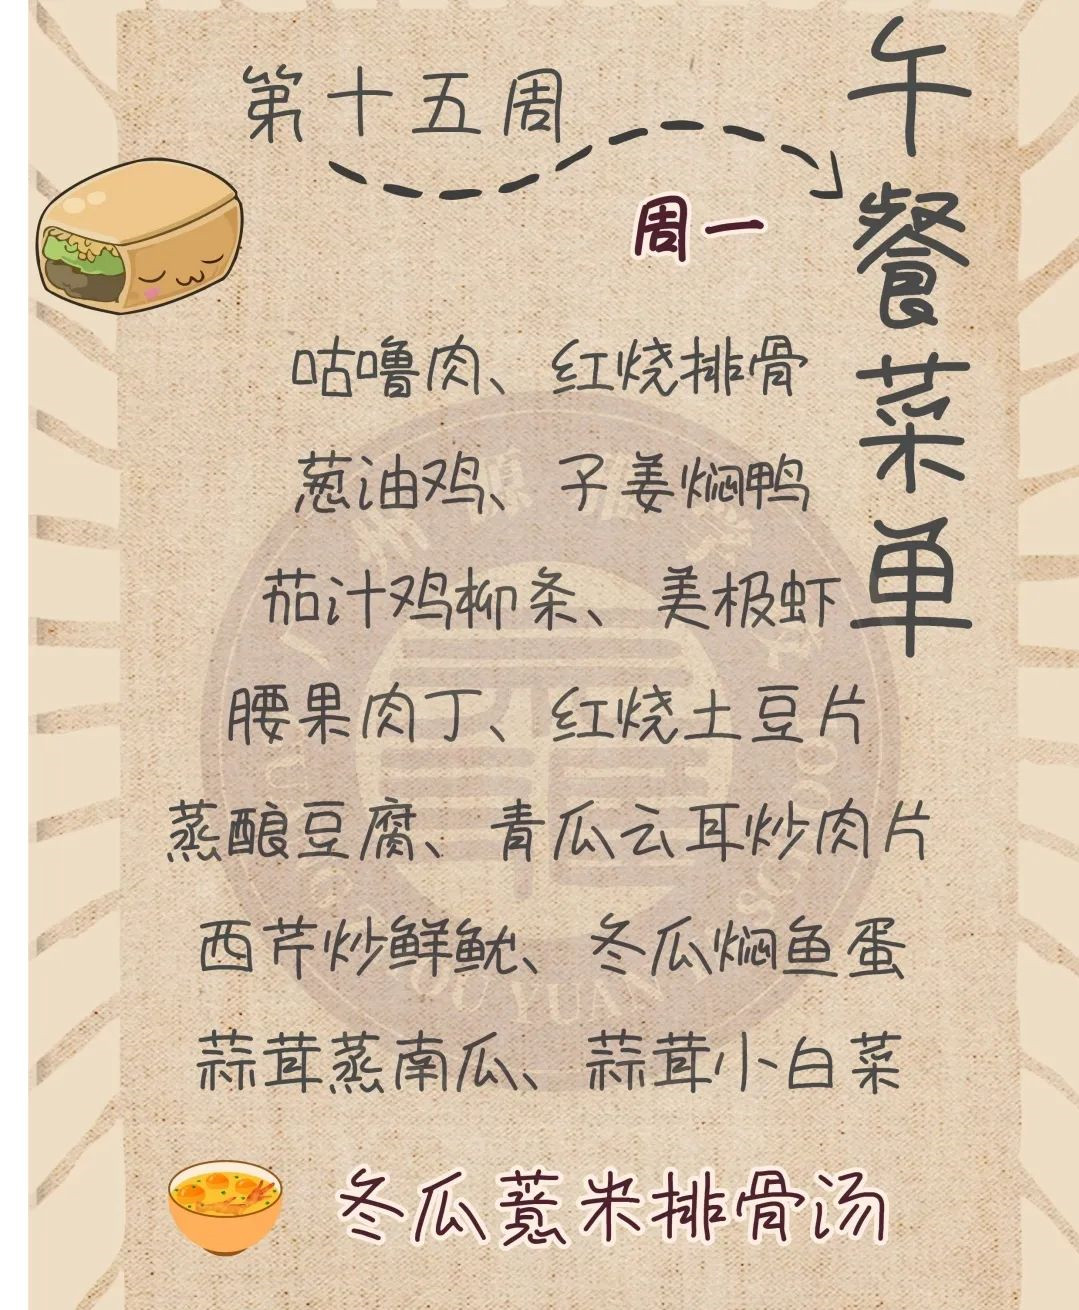 第十五周
午餐菜单
周一
咕噜肉、红烧排骨
葱油鸡、子姜焖鸭
茄汁鸡柳条、美极虾
腰果肉丁、红烧土豆片
蒸酿豆腐、青瓜云耳炒肉片
西芹炒鲜鱿、冬瓜焖鱼蛋
蒜茸蒸南瓜、蒜茸小白菜
冬瓜薏米排骨汤